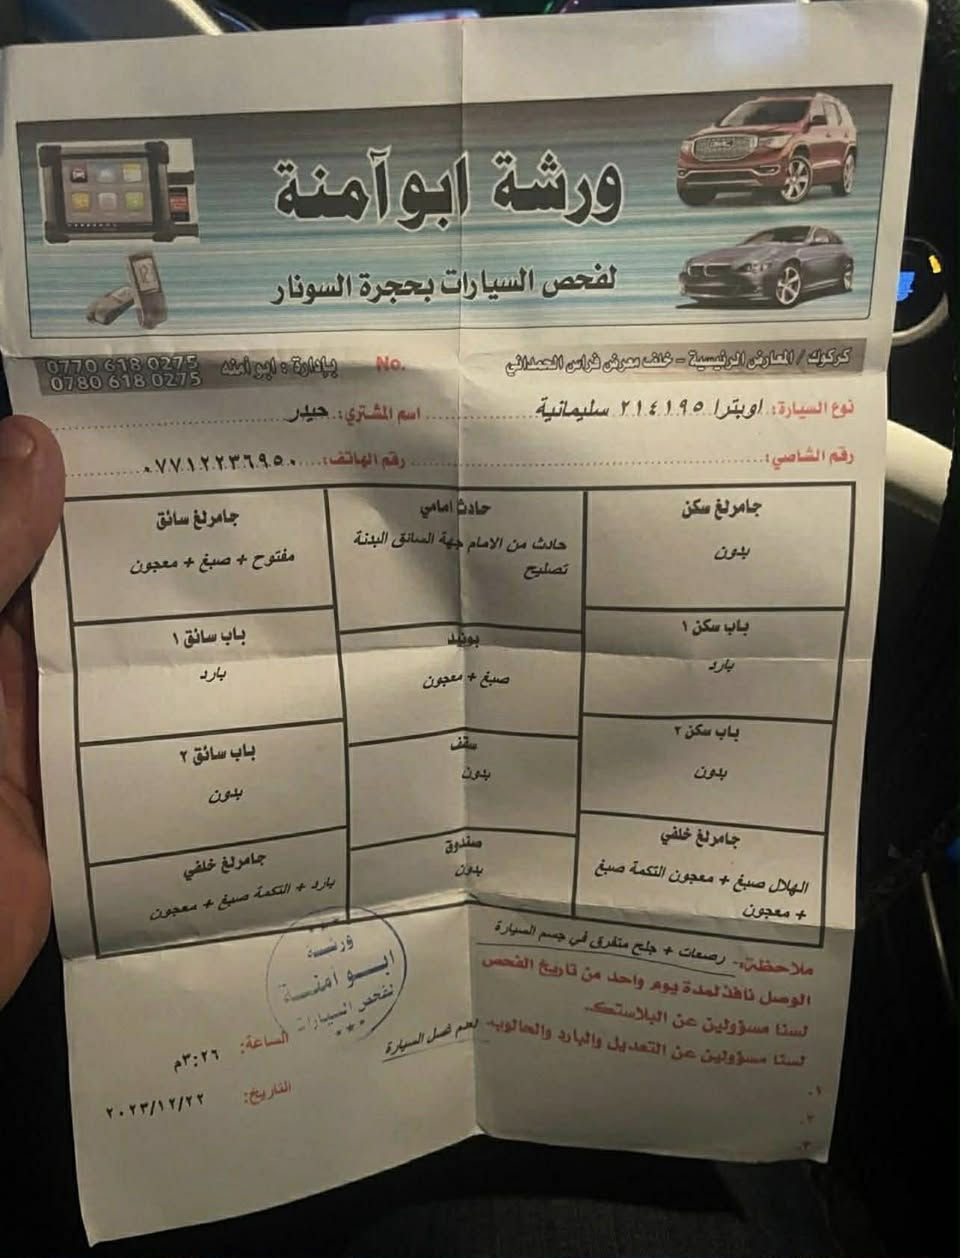 ورشة ابو آمنة
لفحص السيارات بحجرة السونار
كركوك / المعارض الرئيسية - خلف معرض فراس الحمداني
No.
بإدارة : ابو آمنه
0770 618 0275
0780 618 0275
نوع السيارة: اوبترا ٢١٤١٩٥ سليمانية
اسم المشتري: حيدر
رقم الشاصي:
رقم الهاتف: ٠٧٧١٢٢٣٦٩٥٠
جامرلغ سكن
بدون
حادث امامي
حادث من الامام جهة السائق البدنة
تصليح
جامرلغ سائق
مفتوح + صبغ + معجون
باب سكن ١
بارد
بونيد
صبغ + معجون
باب سائق ١
بارد
باب سكن ٢
بدون
سقف
بدون
باب سائق ٢
بدون
جامرلغ خلفي
الهلال صبغ + معجون التكمة صبغ
+ معجون
صندوق
بدون
جامرلغ خلفي
بارد + التكمة صبغ + معجون
ملاحظة:- رصعات + جلح متفرق في جسم السيارة
الوصل نافذ لمدة يوم واحد من تاريخ الفحص
لسنا مسؤولين عن البلاستك.
لسنا مسؤولين عن التعديل والبارد والحالوب. لعدم غسل السيارة
١.
٢.
٣.
ورشة
ابو آمنة
لفحص السيارات
الساعة: ٣:٢٦م
التاريخ: ٢٠٢٣/١٢/٢٢